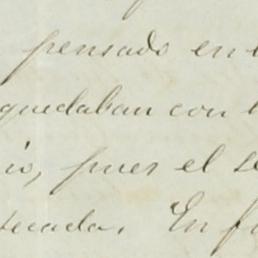 pensado en e
quedaban con l
io, pues el se
secada. En f